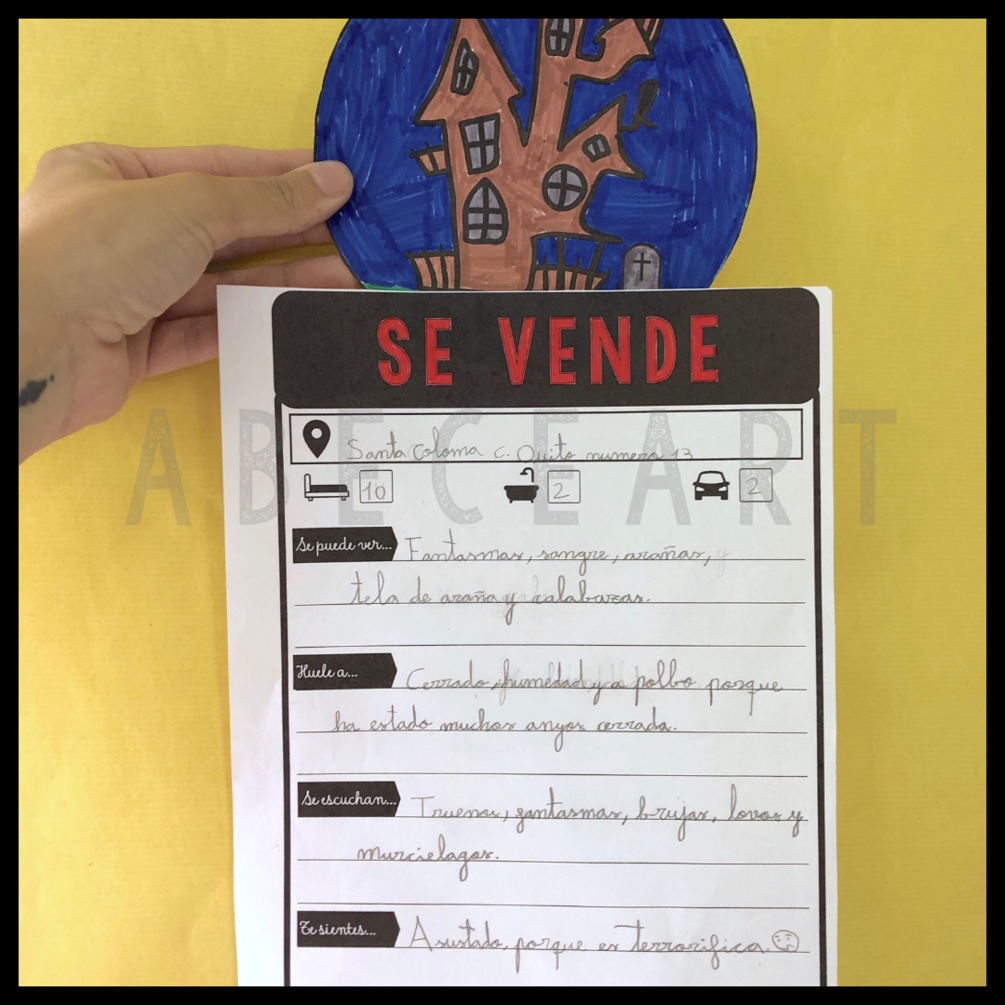 SE VENDE
Santa Coloma c. Quito numero 13
10 2 2
ABECEART
Se puede ver... Fantasmas, sangre, arañas, y
tela de araña y calabazas.
Huele a... Cerrado, humedad y a polbo porque
ha estado muchos anyos cerrada.
Se escuchan... Truenos, fantasmas, brujas, lovos y
murcielagos.
Te sientes... Asustado, porque es terrorifica.